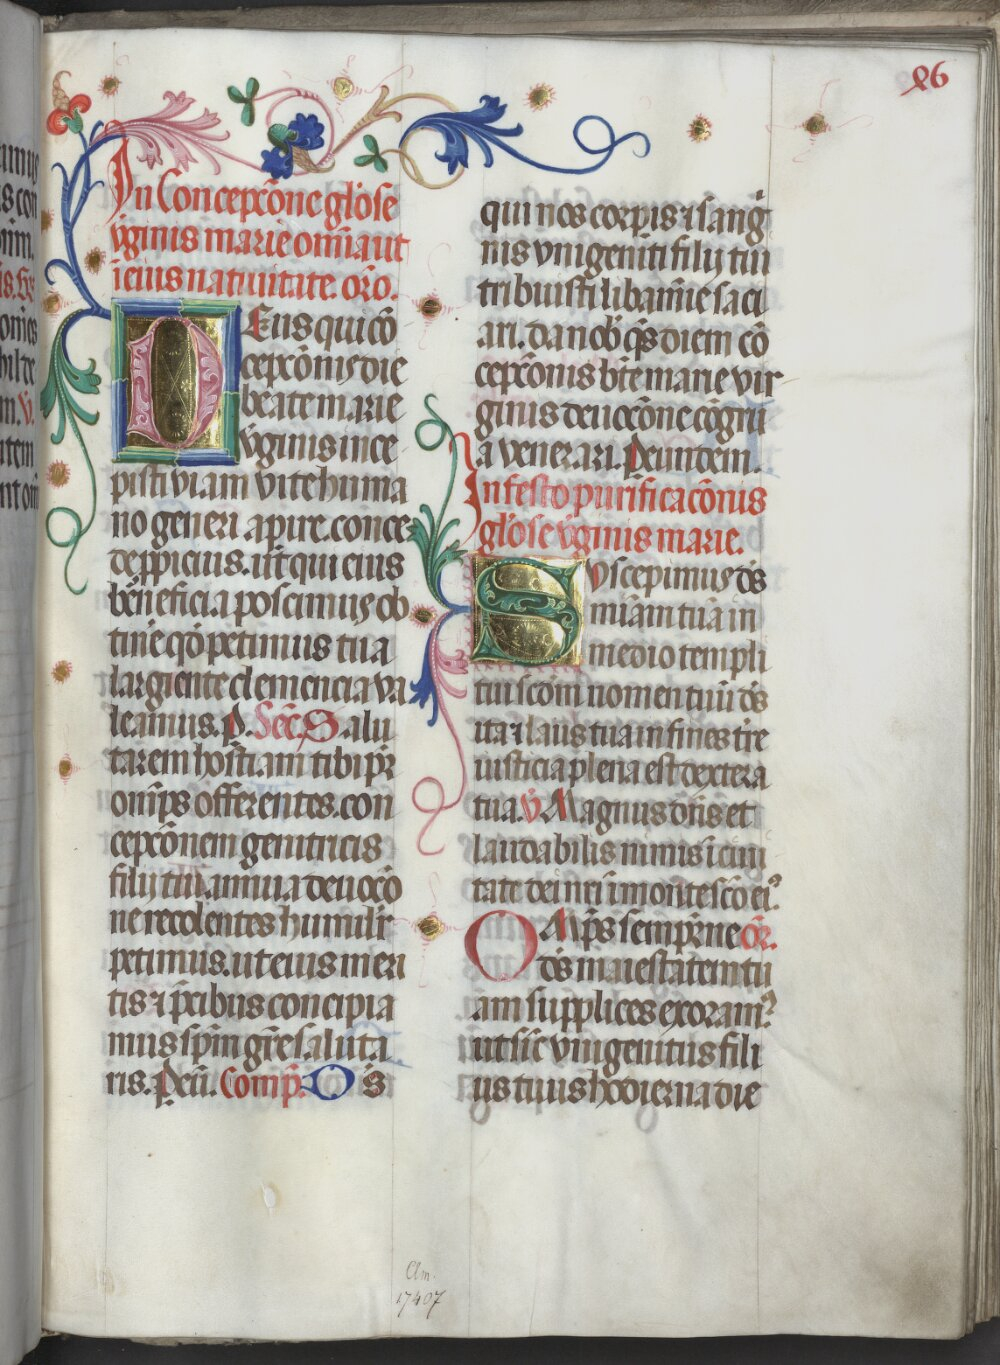 86
In Concepcōne gl'ose
v̄ginis marie om̄i aut
i eius natiuitate. or̄o.
DEus qui cō
cepcōnis die
beate marie
v̄ginis ince
pisti viam vite huma
no generi apire. conce
de ppicius. ut qui eius
b̄neficia poscimus ob
tinē qd̄ petimus tua
largiente clemencia va
leamus. P. Secr̄ Salu
tarem hostiam tibi pr̄
om̄ps offerentes. con
cepcōnem genitricis
filij tui. annua deuocō
ne recolentes humilir̄
petimus. ut eius meri
tis ⁊ p̄cibus concipia
mus sp̄m gr̄e saluta
ris. Peū. Comp̄. Ds̄
qui nos corpīs ⁊ sang
nis vnigeniti filij tui
tribuisti libamīe saci
ari. da nob̄ q̄s diem cō
cepcōnis btē marie vir
ginis deuocōne cōgru
a venerari. Peundem.
In festo purificacōnis
gl'ose v̄ginis marie.
Suscepimus ds̄
mīam tuā in
medio templi
tui scdm̄ nomen tuū ds̄
ita ⁊ laus tua in fines tr̄e
iusticia plena est dextera
tua. v̄ Magnus dn̄s et
laudabilis nimis ī ciui
tate dei nr̄i ī monte scō ei⁹.
OMīps sempīrne or̄.
ds̄ maiestatem tu
am supplices exoram⁹
ut sic̄ vnigenitus fili
us tuus hodierna die
Clm.
17407